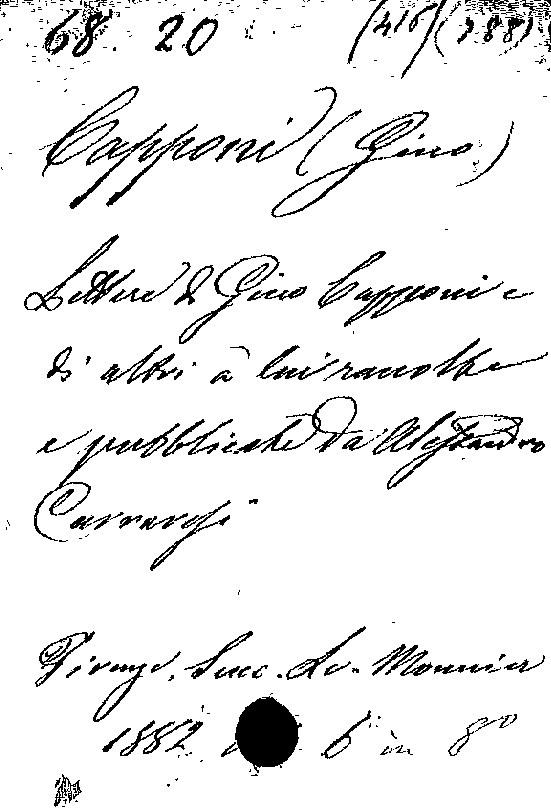 68. 20 (416) (788)
Capponi (Gino)
Lettere di Gino Capponi e
di altri a lui raccolte
e pubblicate da Alessandro
Carraresi
Firenze, Succ. Le-Monnier
1882 6 in 8º